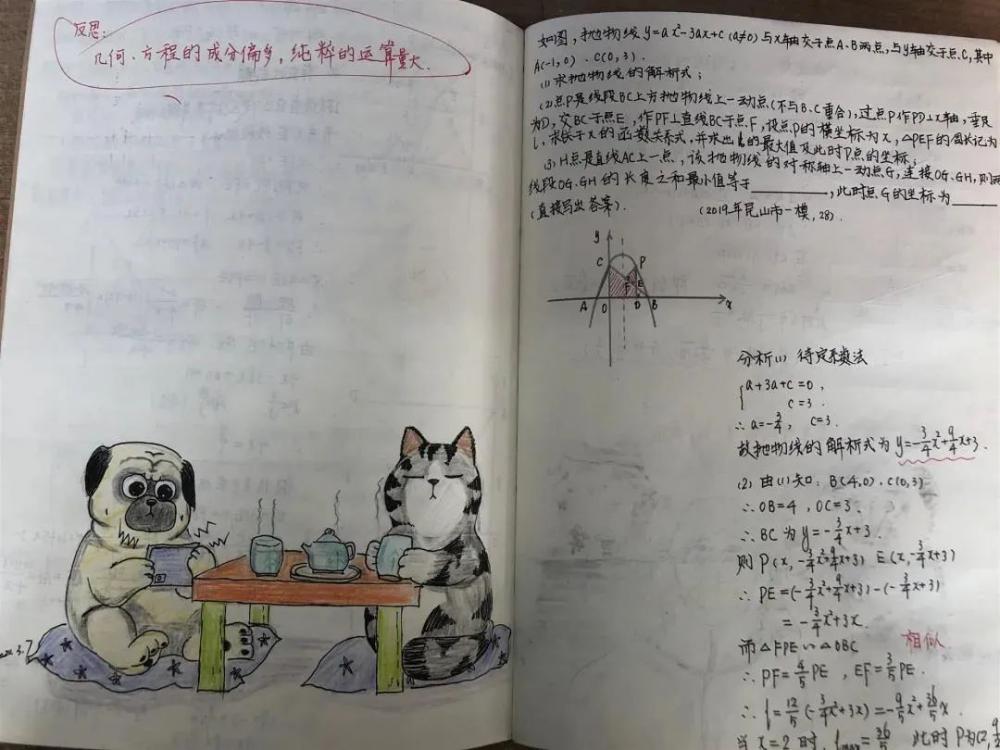 反思:
几何、方程的成分偏多,纯粹的运算量大.
如图,抛物线 y=ax²-3ax+c (a≠0) 与x轴交于点A、B两点,与y轴交于点C,其中
A(-1,0),C(0,3).
(1) 求抛物线的解析式;
(2) 点P是线段BC上方抛物线上一动点(不与B、C重合),过点P作PD⊥x轴,垂足
为D,交BC于点E,作PF⊥直线BC于点F,设点P的横坐标为x,△PEF的周长记为
l,求l关于x的函数关系式,并求出l的最大值及此时P点的坐标;
(3) H点是直线AC上一点,该抛物线的对称轴上一动点G,连接OG、GH,则两
线段OG、GH的长度之和最小值等于________,此时点G的坐标为______
(直接写出答案). (2019年昆山市一模,28).
y
C P
F E
A O D B x
分析(1) 待定系数法
{a+3a+c=0,
c=3.
∴ a=-3/4, c=3.
故抛物线的解析式为 y=-3/4x²+9/4x+3.
(2) 由(1)知: B(4,0), C(0,3)
∴ OB=4, OC=3.
∴ BC为 y=-3/4x+3.
则 P(x,-3/4x²+9/4x+3) E(x,-3/4x+3)
∴ PE=(-3/4x²+9/4x+3)-(-3/4x+3)
=-3/4x²+3x.
而△FPE∽△OBC 相似
∴ PF=4/5PE, EF=3/5PE.
∴ l=12/5(-3/4x²+3x)=-9/5x²+36/5x.
当x=2时, lmax=36/5 此时P为(2,